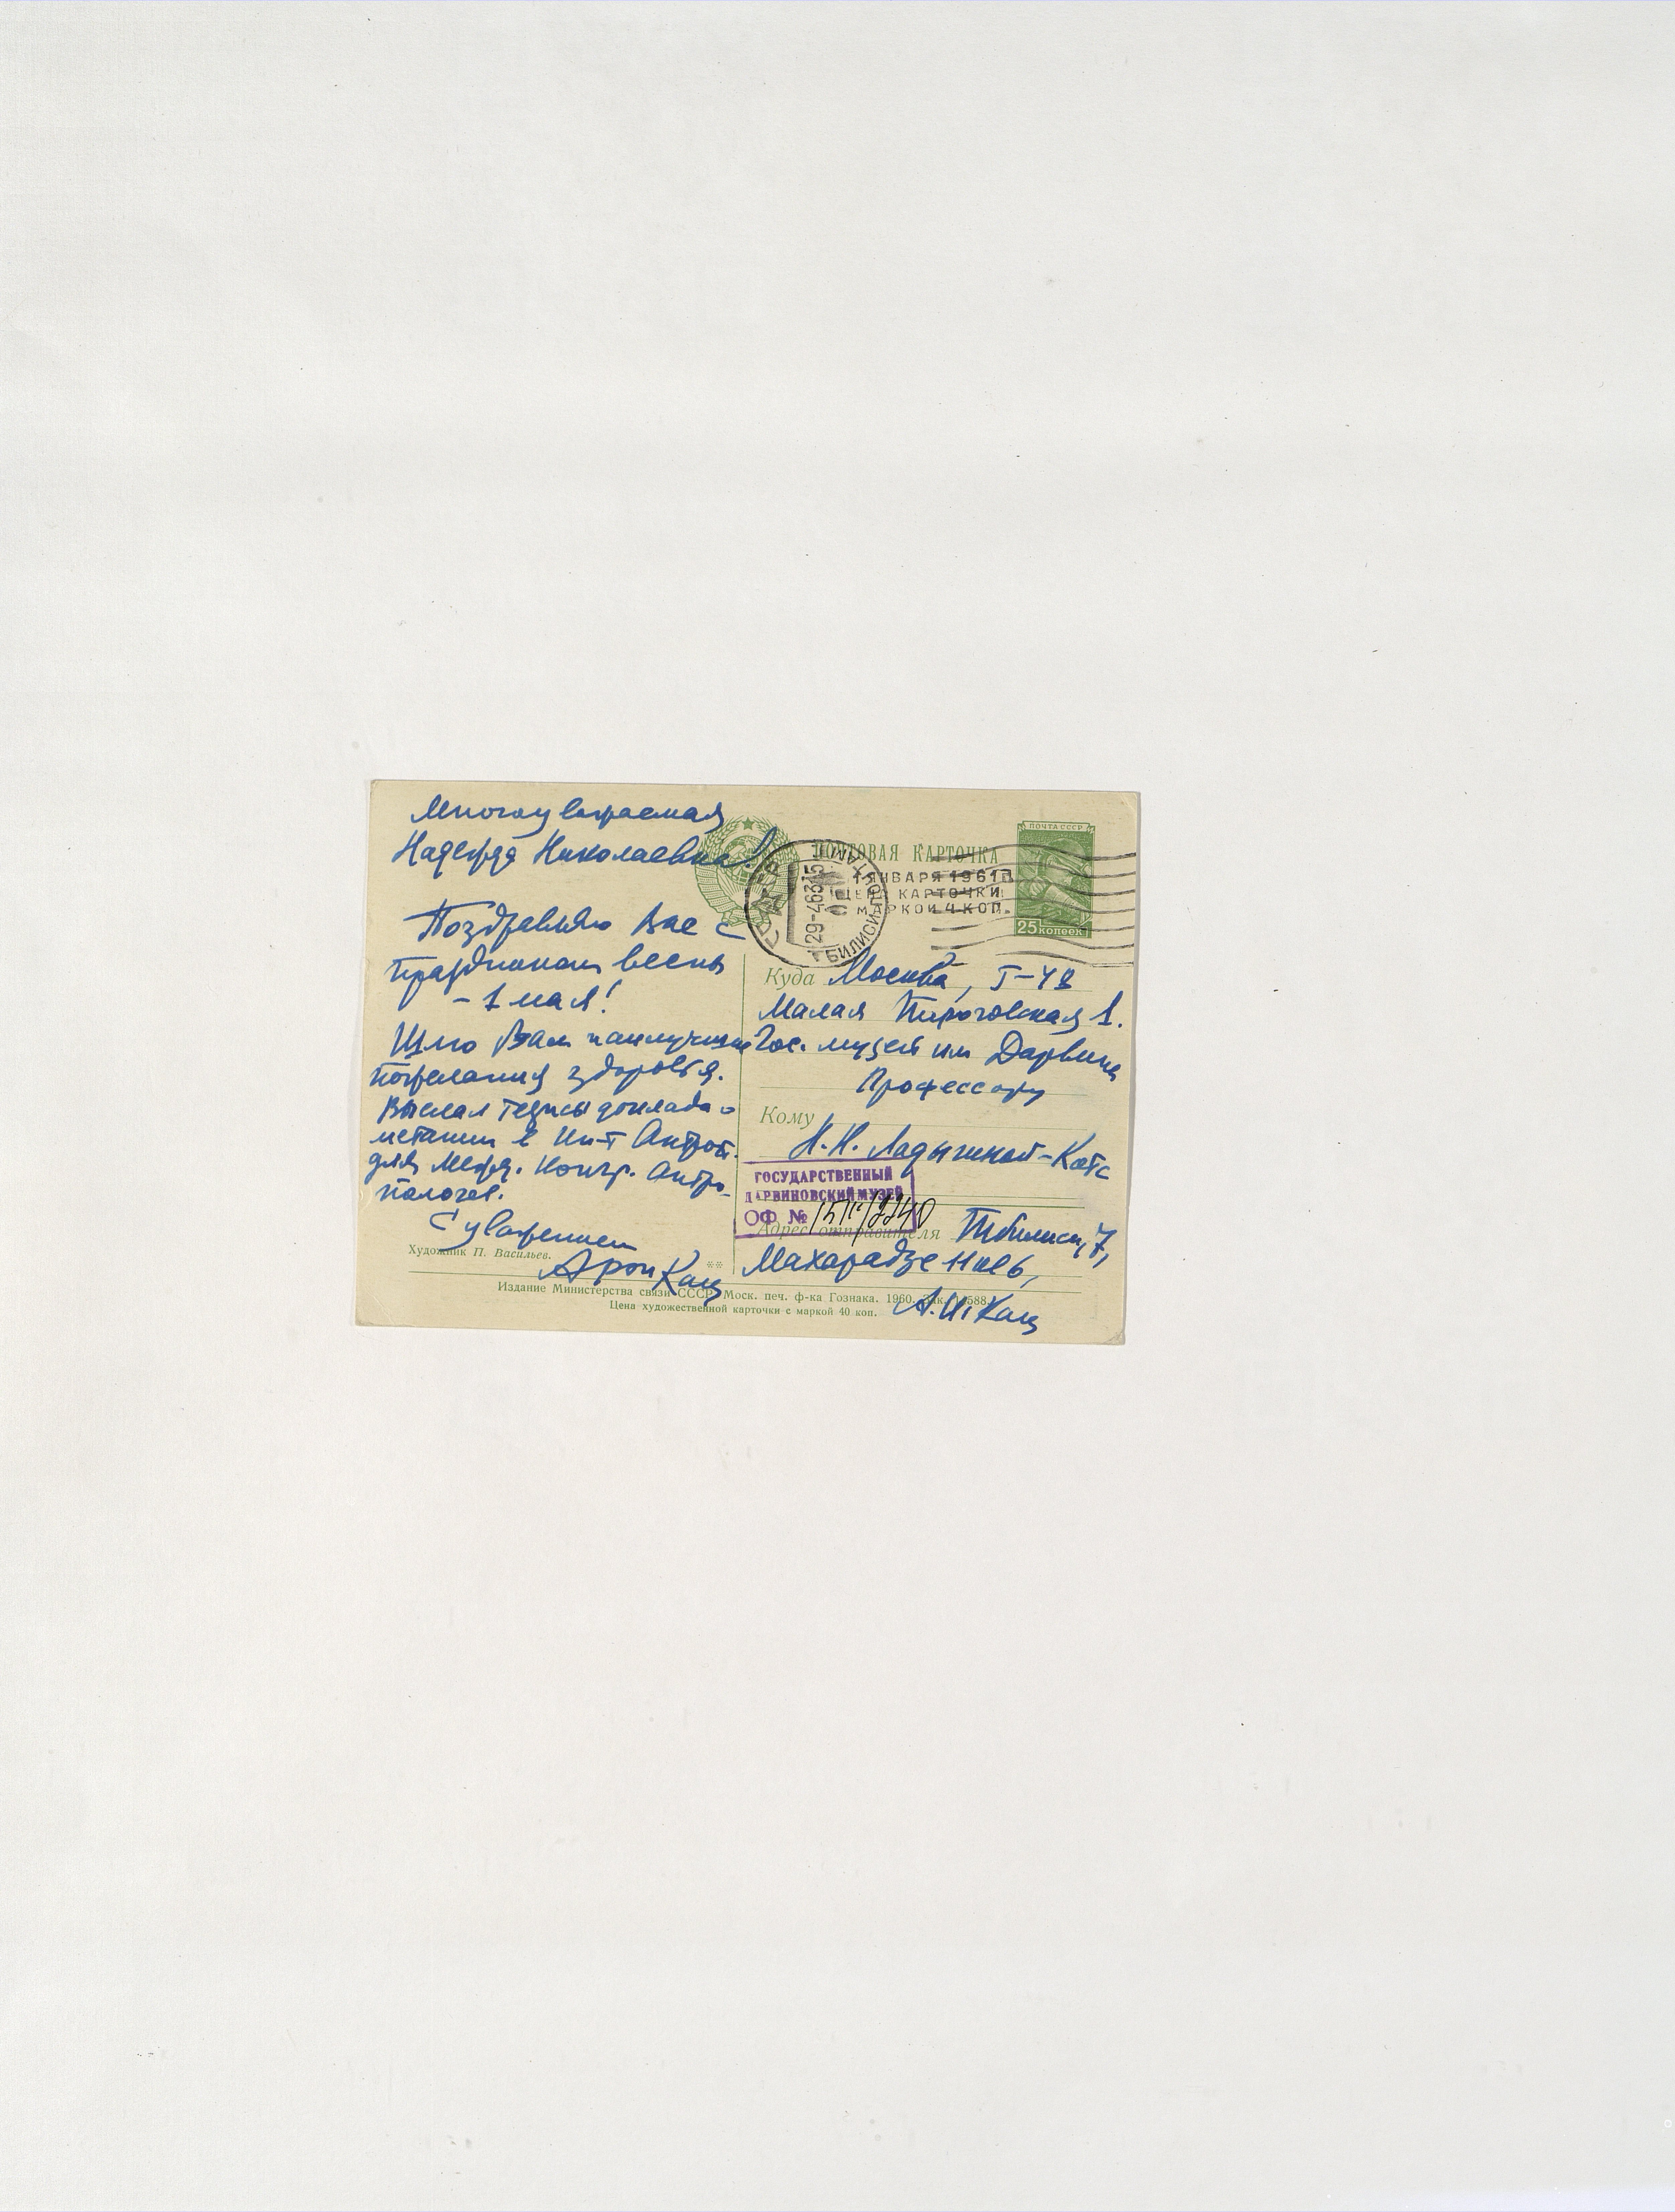 Многоуважаемая
Надежда Николаевна!
Поздравляю Вас с
праздником весны
- 1 мая!
Шлю Вам наилучшие
пожелания здоровья.
Выслал тезисы доклада о
в Ин-т Антроп.
для Межд. Конгр. Антро-
пологов.
С уважением
Арон Кац
Художник П. Васильев.
ПОЧТОВАЯ КАРТОЧКА
1 ЯНВАРЯ 1961 Г.
ЦЕНА КАРТОЧКИ
МАРКОЙ 4 КОП.
ПОЧТА СССР
25 копеек
29-4 63 15
ТБИЛИСИ ПОЧТАМТ
Куда Москва, Г-48
Малая Пироговская 1.
Гос. музей им Дарвина
Профессору
Кому
Н.Н. Ладыгиной-Котс
ГОСУДАРСТВЕННЫЙ
ДАРВИНОВСКИЙ МУЗЕЙ
ОФ №
Адрес отправителя Тбилиси, 7,
Махарадзе
А. И. Кац
**
Издание Министерства связи СССР. Моск. печ. ф-ка Гознака. 1960. Зак. 588
Цена художественной карточки с маркой 40 коп.